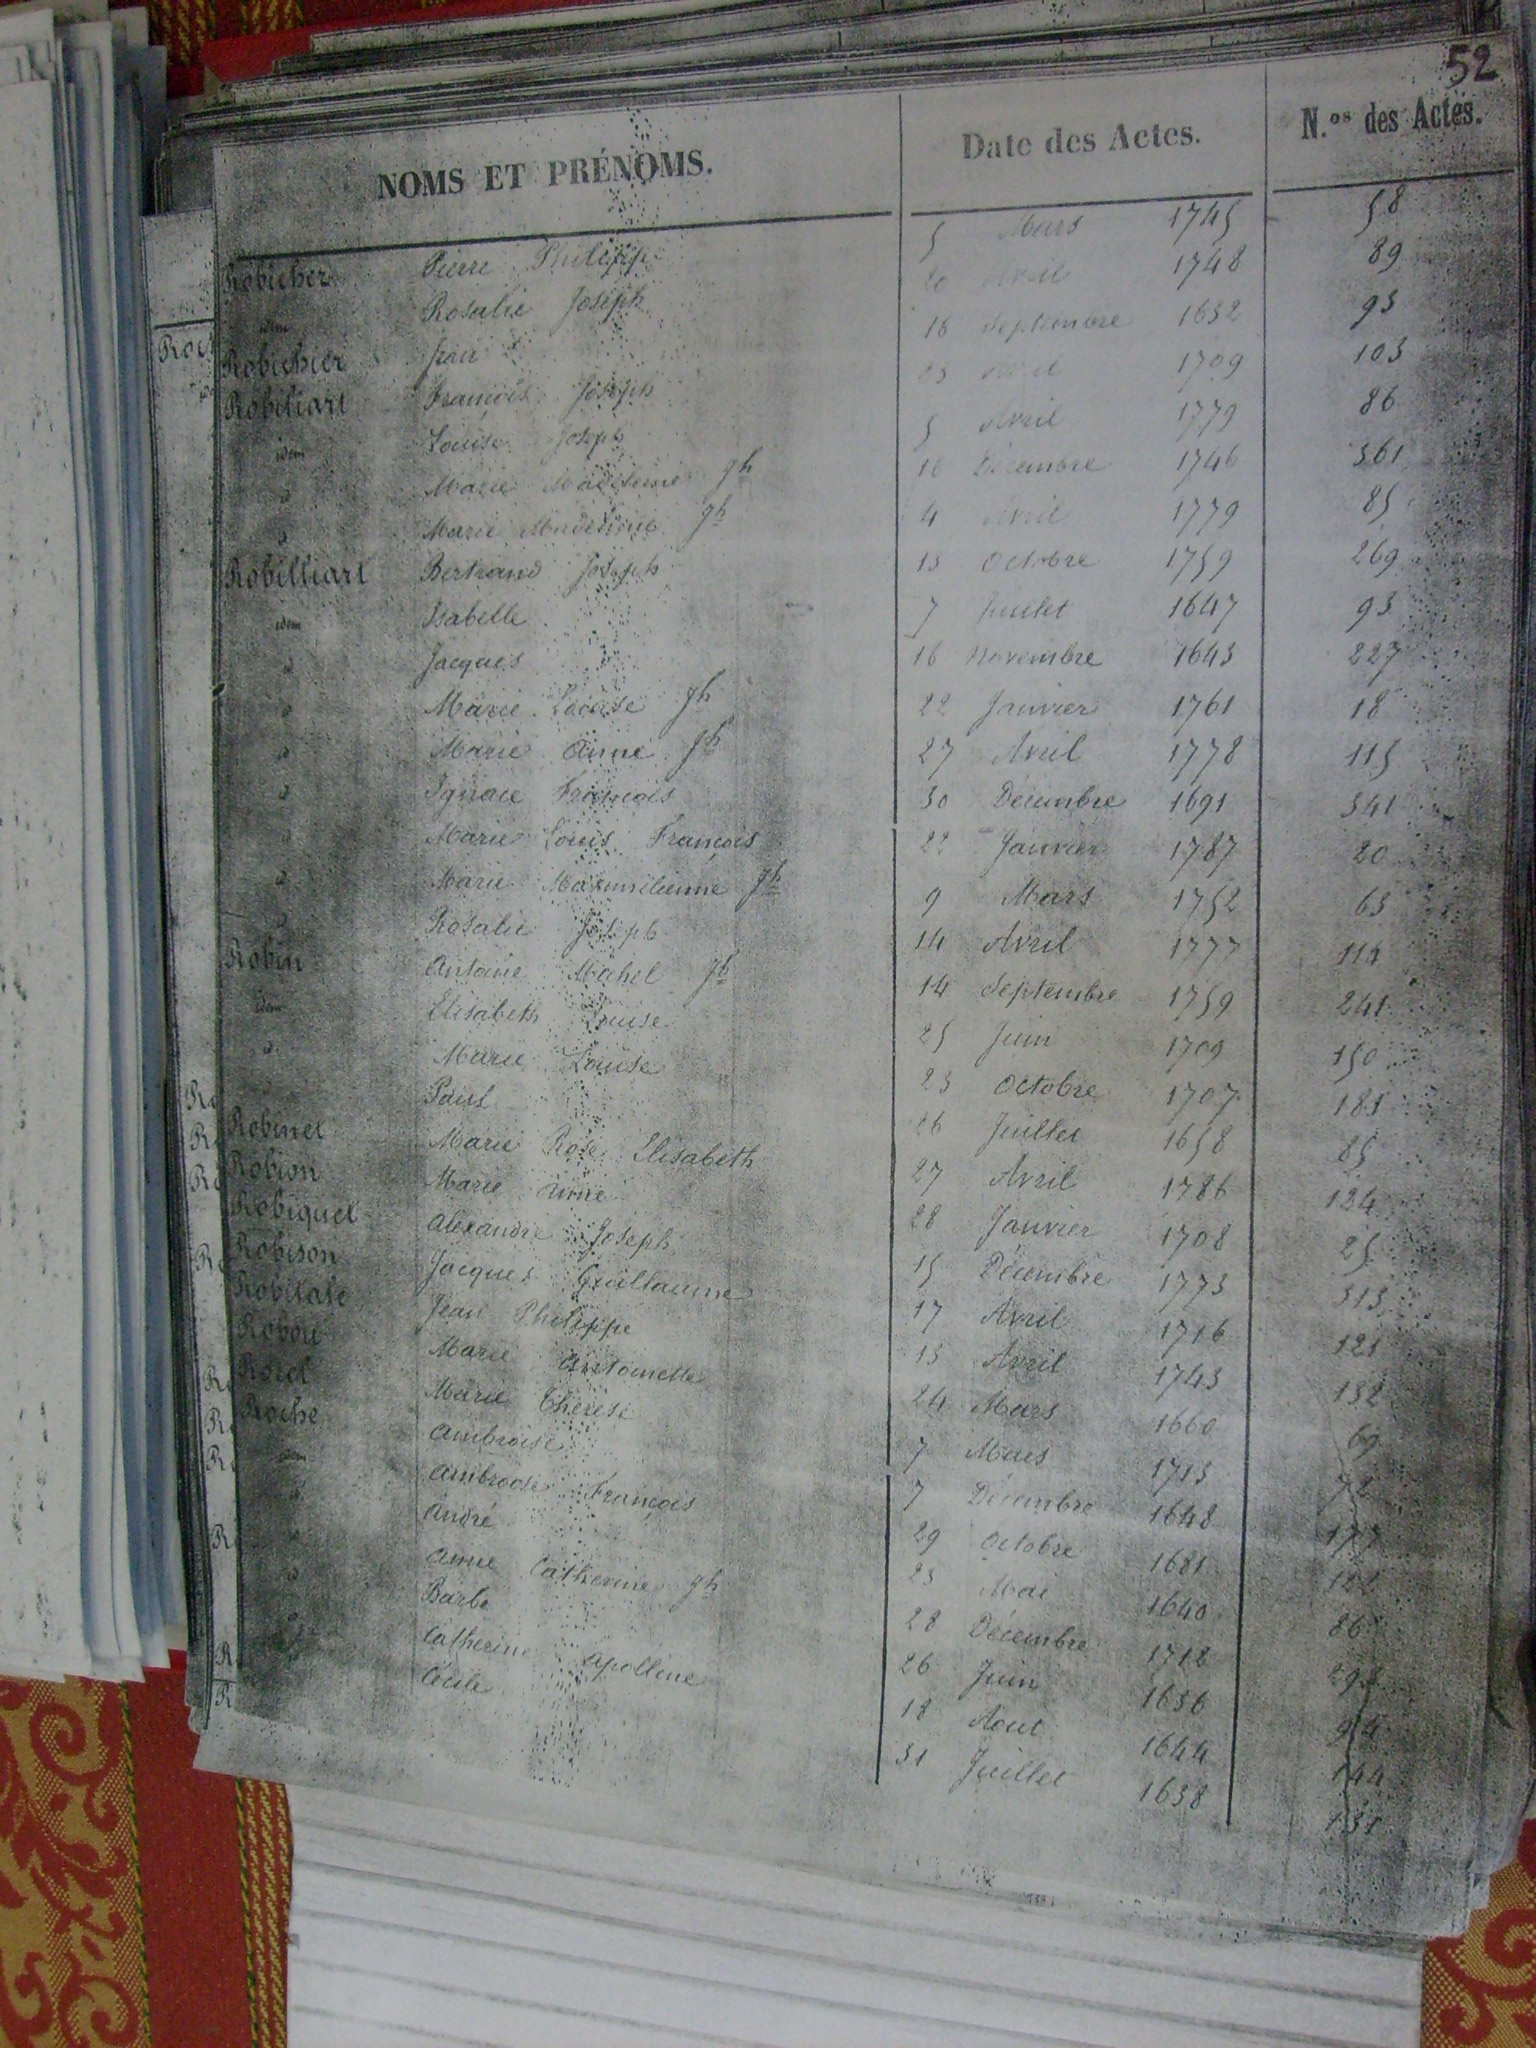 52
NOMS ET PRÉNOMS. Date des Actes. N.os des Actes.
Robicher Pierre Philipp 5 Mars 1745 58
idem Rosalie Joseph 20 Avril 1748 89
Robichier Jean 16 Septembre 1632 93
Robiliart François Joseph 23 Avril 1709 103
idem Louise Joseph 5 Avril 1779 86
d Marie Madeleine Jh 16 Décembre 1746 361
d Marie Madeleine Jh 4 Avril 1779 85
Robilliart Bertrand Joseph 13 Octobre 1759 269
idem Isabelle 7 Juillet 1647 93
d Jacques 16 Novembre 1643 227
d Marie Louise Jh 22 Janvier 1761 18
d Marie Anne Jh 27 Avril 1778 115
d Ignace François 30 Décembre 1691 341
d Marie Louis François 22 Janvier 1787 20
d Marie Maximilienne Jh 9 Mars 1752 63
d Rosalie Joseph 14 Avril 1777 114
Robin Antoine Mahel Jh 14 Septembre 1759 241
idem Elisabeth Louise 25 Juin 1709 150
d Marie Louise 23 Octobre 1707 185
Paul 26 Juillet 1658 85
Robinet Marie Rose Elisabeth 27 Avril 1786 124
Robion Marie Anne 28 Janvier 1708 25
Robiquet Alexandre Joseph 15 Décembre 1773 313
Robison Jacques Guillaume 17 Avril 1716 121
Robitale Jean Philippe 13 Avril 1743 132
Robou Marie Antoinette 24 Mars 1660 69
Rocel Marie Thérèse 7 Mars 1713 72
Roche Ambroise 7 Décembre 1648 177
idem Ambroise François 29 Octobre 1681
d André 23 Mai 1640 86
d Anne Catherine Jh 28 Décembre 1712
d Barbe 26 Juin 1636 94
d Catherine Apolline 18 Aout 1644 144
d Cécile 31 Juillet 1638 131